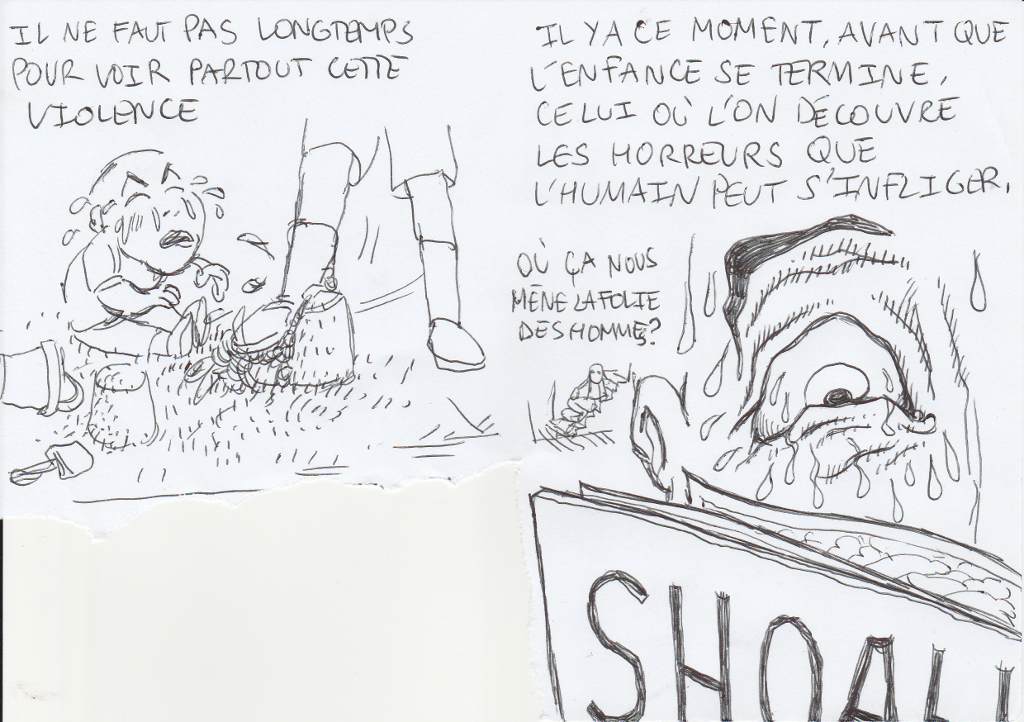 IL NE FAUT PAS LONGTEMPS
POUR VOIR PARTOUT CETTE
VIOLENCE
IL Y A CE MOMENT, AVANT QUE
L'ENFANCE SE TERMINE,
CELUI OÙ L'ON DÉCOUVRE
LES HORREURS QUE
L'HUMAIN PEUT S'INFLIGER.
OÙ ÇA NOUS
MÈNE LA FOLIE
DES HOMMES?
SHOAH